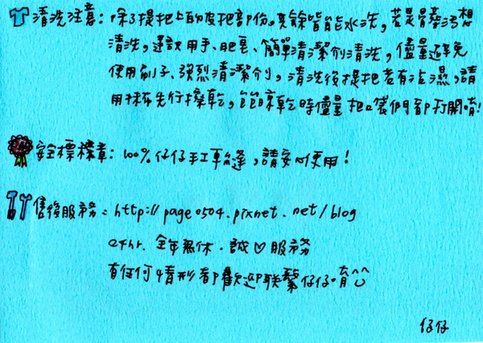 清洗注意：除了提把上的皮把部份，其餘皆能水洗，若是骯髒污想
清洗，建議用手、肥皂、簡單清潔劑清洗，儘量避免
使用刷子、強烈清潔劑，清洗後提把若有沾濕，請
用抹布先行擦乾，晾乾時儘量把口袋們都打開唷！
安全標章：100%仔仔手工車縫，請安心使用！
售後服務：http://page0504.pixnet.net/blog
24hr. 全年無休．誠♡服務
有任何情形都歡迎聯繫仔仔唷
仔仔